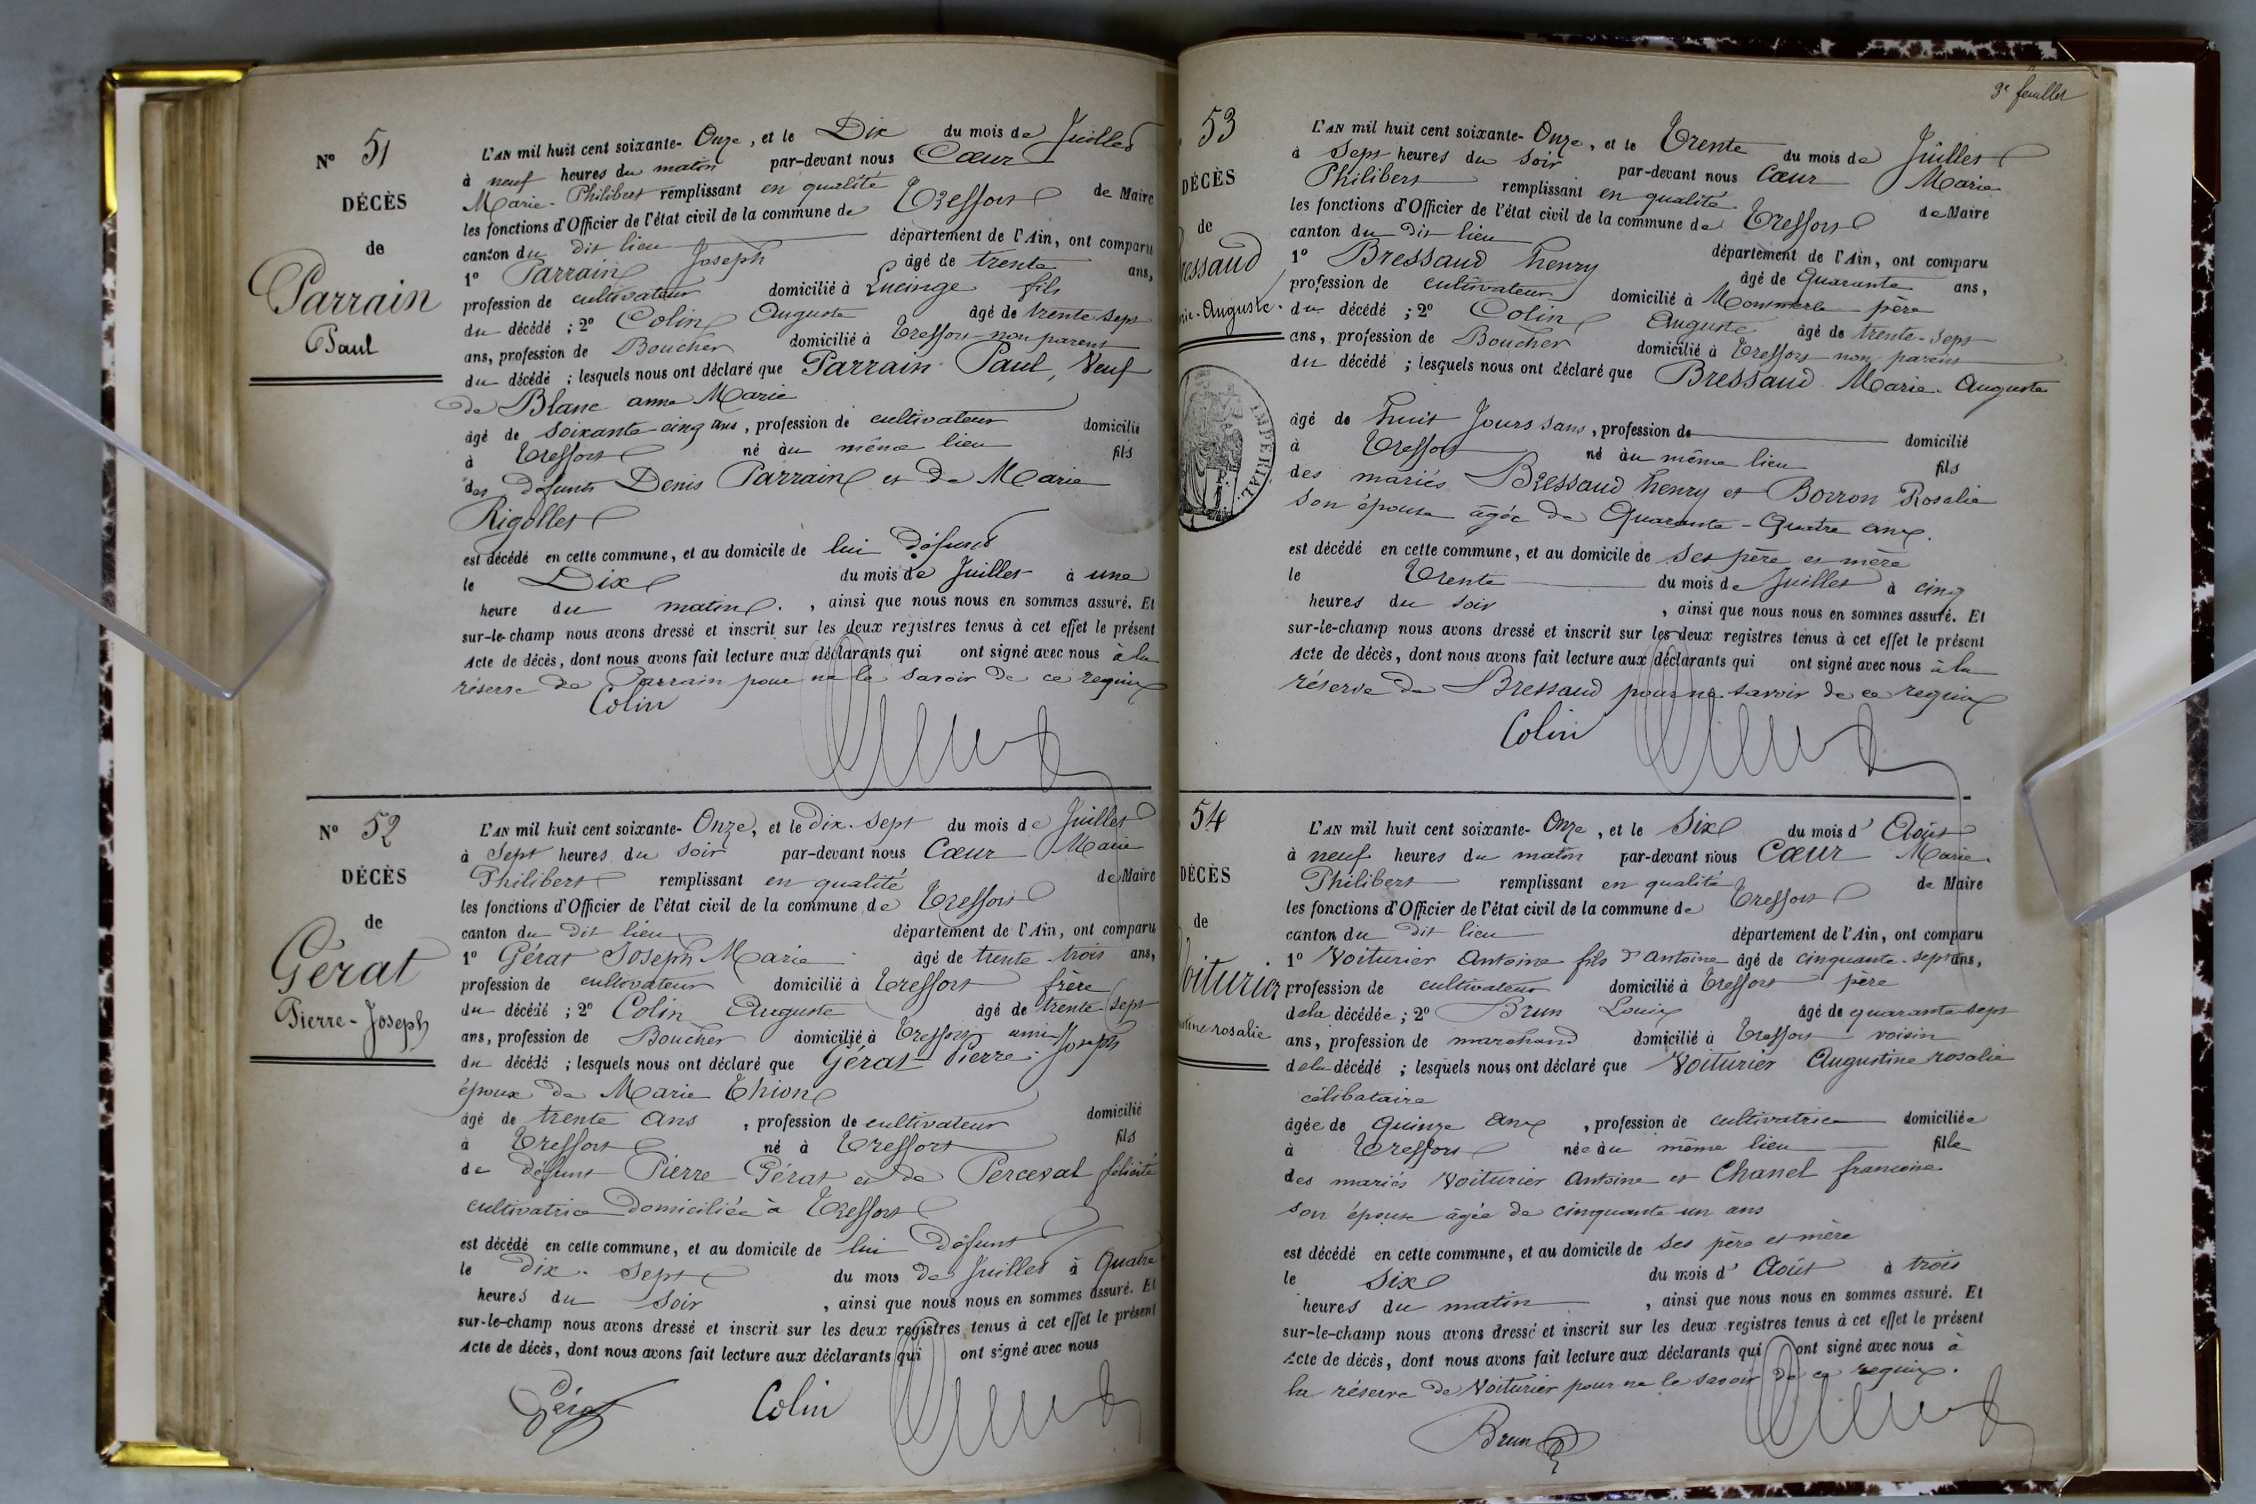 N° 51
DÉCÈS
de
Parrain
Paul
L'AN mil huit cent soixante-Onze, et le Dix du mois de Juillet
à neuf heures du matin par-devant nous Cœur
Marie-Philibert remplissant en qualité de Maire
les fonctions d'Officier de l'état civil de la commune de Treffort
canton du dit lieu département de l'Ain, ont comparu
1° Parrain Joseph âgé de trente ans,
profession de cultivateur domicilié à Lucinge fils
du décédé ; 2° Colin Auguste âgé de trente sept
ans, profession de Boucher domicilié à Treffort non parent
du décédé ; lesquels nous ont déclaré que Parrain Paul, Veuf
de Blanc anne Marie
âgé de soixante cinq ans, profession de cultivateur domicilié
à Treffort né au même lieu fils
des défunts Denis Parrain et de Marie
Rigollet
est décédé en cette commune, et au domicile de lui défunt
le Dix du mois de Juillet à une
heure du matin. , ainsi que nous nous en sommes assuré. Et
sur-le-champ nous avons dressé et inscrit sur les deux registres tenus à cet effet le présent
Acte de décès, dont nous avons fait lecture aux déclarants qui ont signé avec nous à la
réserve de Parrain pour ne le savoir de ce requis
Colin
N° 52
DÉCÈS
de
Gérat
Pierre-Joseph
L'AN mil huit cent soixante-Onze, et le dix-sept du mois de Juillet
à sept heures du soir par-devant nous Cœur Marie
Philibert remplissant en qualité de Maire
les fonctions d'Officier de l'état civil de la commune de Treffort
canton du dit lieu département de l'Ain, ont comparu
1° Gérat Joseph Marie âgé de trente trois ans,
profession de cultivateur domicilié à Treffort frère
du décédé ; 2° Colin Auguste âgé de trente sept
ans, profession de Boucher domicilié à Treffort ami
du décédé ; lesquels nous ont déclaré que Gérat Pierre-Joseph
époux de Marie Thion
âgé de trente ans , profession de cultivateur domicilié
à Treffort né à Treffort fils
de défunt Pierre Gérat et de Perceval félicité
cultivatrice domiciliée à Treffort
est décédé en cette commune, et au domicile de lui défunt
le dix-sept du mois de Juillet à quatre
heures du soir , ainsi que nous nous en sommes assuré. Et
sur-le-champ nous avons dressé et inscrit sur les deux registres tenus à cet effet le présent
Acte de décès, dont nous avons fait lecture aux déclarants qui ont signé avec nous
Gérat Colin
3e feuillet
53
DÉCÈS
de
ressaud
rie-Auguste.
IMPÉRIAL.
L'AN mil huit cent soixante-Onze, et le Trente du mois de Juillet
à sept heures du soir par-devant nous Cœur Marie
Philibert remplissant en qualité de Maire
les fonctions d'Officier de l'état civil de la commune de Treffort
canton du dit lieu département de l'Ain, ont comparu
1° Bressaud henry âgé de Quarante ans,
profession de cultivateur domicilié à Montmerle père
du décédé ; 2° Colin Auguste âgé de trente-sept
ans, profession de Boucher domicilié à Treffort non parent
du décédé ; lesquels nous ont déclaré que Bressaud Marie-Auguste
âgé de huit Jours sans, profession de domicilié
à Treffort né au même lieu fils
des mariés Bressaud henry et Borron Rosalie
son épouse âgée de Quarante-Quatre ans.
est décédé en cette commune, et au domicile de ses père et mère
le Trente du mois de Juillet à cinq
heures du soir , ainsi que nous nous en sommes assuré. Et
sur-le-champ nous avons dressé et inscrit sur les deux registres tenus à cet effet le présent
Acte de décès, dont nous avons fait lecture aux déclarants qui ont signé avec nous à la
réserve de Bressaud pour ne savoir de ce requis
Colin
54
DÉCÈS
de
Voiturier
tine-rosalie
L'AN mil huit cent soixante-Onze, et le Six du mois d'Août
à neuf heures du matin par-devant nous Cœur Marie-
Philibert remplissant en qualité de Maire
les fonctions d'Officier de l'état civil de la commune de Treffort
canton du dit lieu département de l'Ain, ont comparu
1° Voiturier Antoine fils d'antoine âgé de cinquante-sept ans,
profession de cultivateur domicilié à Treffort père
de la décédée ; 2° Brun Louis âgé de quarante sept
ans, profession de marchand domicilié à Treffort voisin
de la décédé ; lesquels nous ont déclaré que Voiturier Augustine rosalie
célibataire
âgée de quinze ans , profession de cultivatrice domiciliée
à Treffort née au même lieu fille
des mariés Voiturier Antoine et Chanel francoise
son épouse âgée de cinquante un ans
est décédé en cette commune, et au domicile de ses père et mère
le Six du mois d'Août à trois
heures du matin , ainsi que nous nous en sommes assuré. Et
sur-le-champ nous avons dressé et inscrit sur les deux registres tenus à cet effet le présent
Acte de décès, dont nous avons fait lecture aux déclarants qui ont signé avec nous à
la réserve de Voiturier pour ne le savoir de ce requis.
Brun